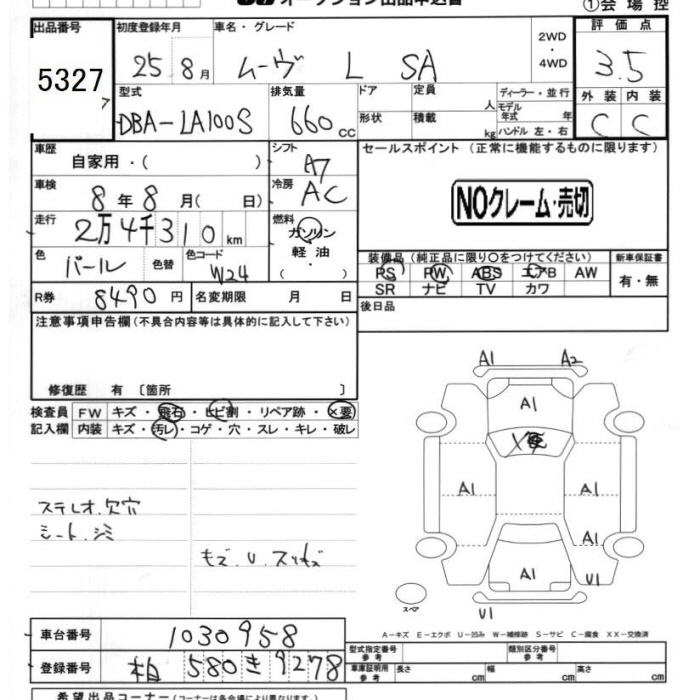 オークション出品申込書
①会場控
出品番号 5327
初度登録年月 25.8月
車名・グレード ムーヴ L SA
2WD・4WD
評価点 3.5
外装 C 内装 C
型式 DBA-LA100S
排気量 660cc
ドア 定員 人
形状 積載 kg
ディーラー・並行
モデル年式 年
ハンドル 左・右
車歴 自家用・( )
シフト A7
セールスポイント (正常に機能するものに限ります)
車検 8年8月( 日)
冷房 AC
NOクレーム・売切
走行 2万4千310km
燃料 ガソリン 軽油 ・( )
色 パール 色替 色コード W24
装備品 (純正品に限り○をつけてください)
PS PW ABS エアB AW
SR ナビ TV カワ
新車保証書 有・無
R券 8490円 名変期限 月 日
後日品
注意事項申告欄 (不具合内容等は具体的に記入して下さい)
修復歴 有 〔箇所 〕
検査員 FW キズ・飛石・ヒビ割・リペア跡・×要
記入欄 内装 キズ・汚レ・コゲ・穴・スレ・キレ・破レ
ステレオ.欠穴
シート.シミ
A1 A2
A1
A1 A1
A1
A1 U1
U1
スペア
A-キズ E-エクボ U-凹み W-補修跡 S-サビ C-腐食 XX-交換済
車台番号 1030958
登録番号 相 580 き 9278
型式指定番号 参考 類別区分番号 参考
車庫証明用 参考 長さ cm 幅 cm 高さ cm
希望出品コーナー (コーナーは各会場により異なります。)